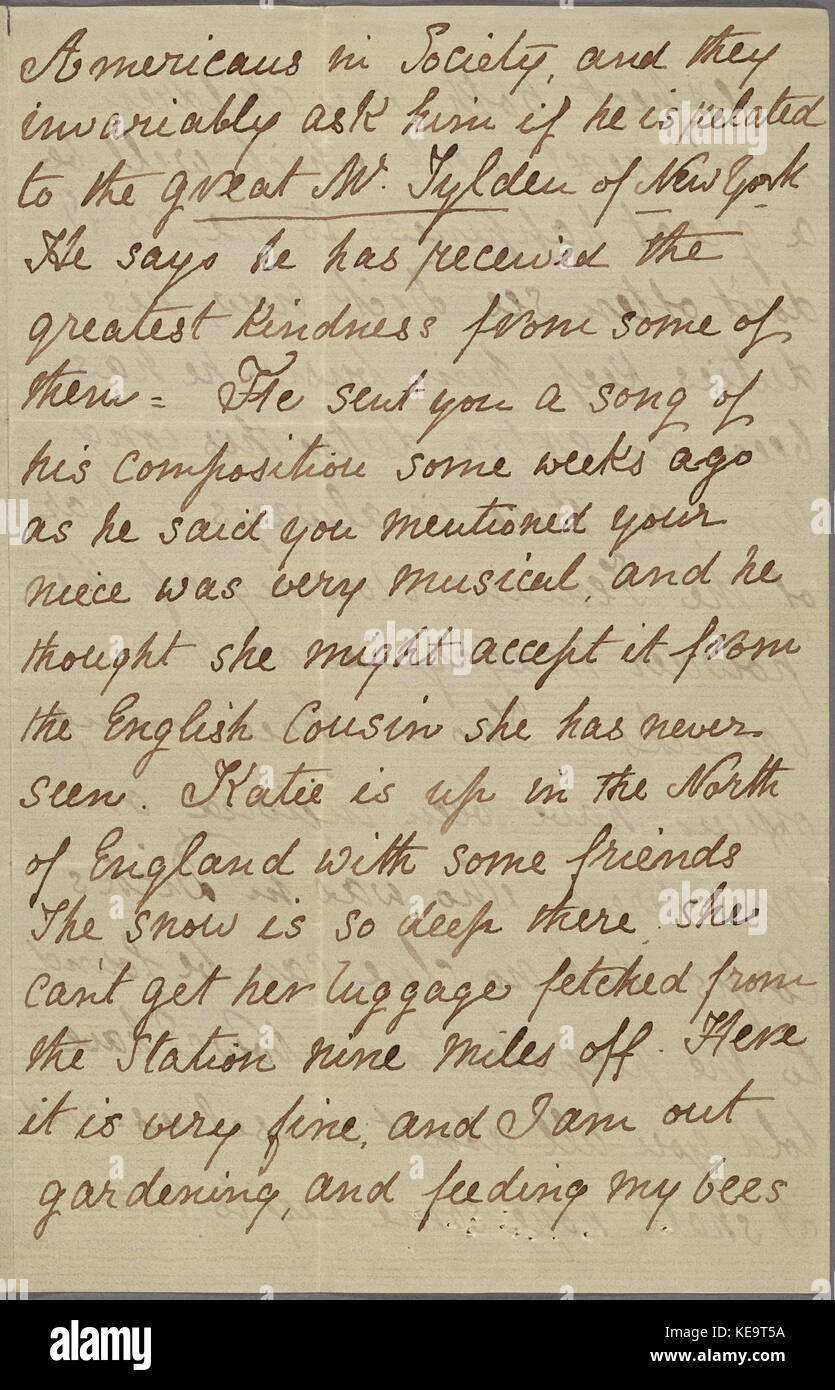 Americans in Society, and they
invariably ask him if he is related
to the great Mr. Tylden of New York
He says he has received the
greatest kindness from some of
them = He sent you a song of
his composition some weeks ago
as he said you mentioned your
niece was very musical, and he
thought she might accept it from
the English Cousin she has never
seen. Katie is up in the North
of England with some friends
The snow is so deep there, she
can't get her luggage fetched from
the Station nine miles off. Here
it is very fine, and I am out
gardening, and feeding my bees
alamy
Image ID: KE9T5A
www.alamy.com